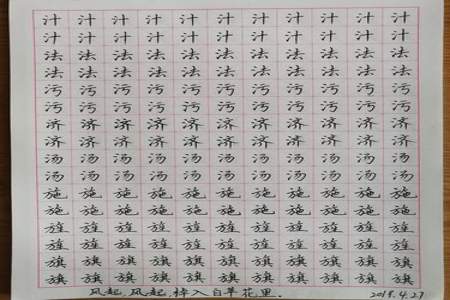 汁 汁 汁 汁 汁 汁 汁 汁 汁 汁 汁
汁 汁 汁 汁 汁 汁 汁 汁 汁 汁 汁
法 法 法 法 法 法 法 法 法 法 法
法 法 法 法 法 法 法 法 法 法 法
污 污 污 污 污 污 污 污 污 污 污
污 污 污 污 污 污 污 污 污 污 污
济 济 济 济 济 济 济 济 济 济 济
济 济 济 济 济 济 济 济 济 济 济
汤 汤 汤 汤 汤 汤 汤 汤 汤 汤 汤
汤 汤 汤 汤 汤 汤 汤 汤 汤 汤 汤
施 施 施 施 施 施 施 施 施 施 施
施 施 施 施 施 施 施 施 施 施 施
旌 旌 旌 旌 旌 旌 旌 旌 旌 旌 旌
旌 旌 旌 旌 旌 旌 旌 旌 旌 旌 旌
旗 旗 旗 旗 旗 旗 旗 旗 旗 旗 旗
旗 旗 旗 旗 旗 旗 旗 旗 旗 旗 旗
风起,风起,掉入白草花里. 2019.4.27